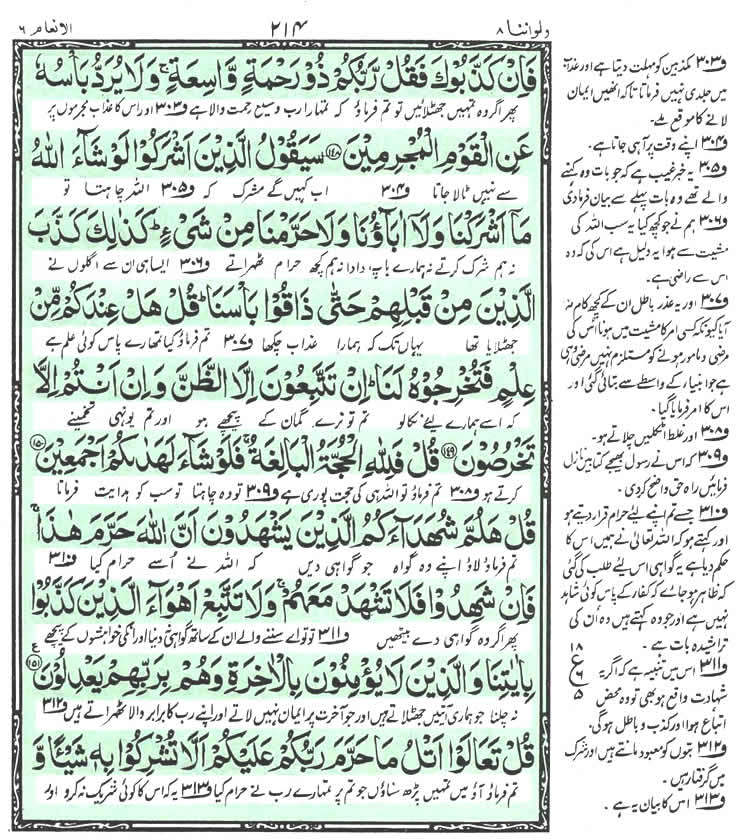 ولواننا ۸
۲۱۴
الانعام ۶
فَاِنْ كَذَّبُوْكَ فَقُلْ رَّبُّكُمْ ذُوْ رَحْمَةٍ وَّاسِعَةٍ ۚ وَلَا يُرَدُّ بَاْسُهٗ
پھر اگر وہ تمہیں جھٹلائیں تو تم فرماؤ کہ تمہارا رب وسیع رحمت والا ہے ف۳۰۳ اور اس کا عذاب مجرموں پر
عَنِ الْقَوْمِ الْمُجْرِمِيْنَ ﴿۱۴۸﴾ سَيَقُوْلُ الَّذِيْنَ اَشْرَكُوْا لَوْ شَآءَ اللّٰهُ
سے نہیں ٹالا جاتا ف۳۰۴ اب کہیں گے مشرک کہ ف۳۰۵ اللہ چاہتا تو
مَاۤ اَشْرَكْنَا وَلَاۤ اٰبَآؤُنَا وَلَا حَرَّمْنَا مِنْ شَيْءٍ ؕ كَذٰلِكَ كَذَّبَ
نہ ہم شرک کرتے نہ ہمارے باپ دادا نہ ہم کچھ حرام ٹھہراتے ف۳۰۶ ایسا ہی ان سے اگلوں نے
الَّذِيْنَ مِنْ قَبْلِهِمْ حَتّٰى ذَاقُوْا بَاْسَنَا ؕ قُلْ هَلْ عِنْدَكُمْ مِّنْ
جھٹلایا تھا یہاں تک کہ ہمارا عذاب چکھا ف۳۰۷ تم فرماؤ کیا تمہارے پاس کوئی علم ہے
عِلْمٍ فَتُخْرِجُوْهُ لَنَا ؕ اِنْ تَتَّبِعُوْنَ اِلَّا الظَّنَّ وَاِنْ اَنْتُمْ اِلَّا
کہ اسے ہمارے لیئے نکالو تم تو نرے گمان کے پیچھے ہو اور تم یونہی تخمینے
تَخْرُصُوْنَ ﴿۱۴۹﴾ قُلْ فَلِلّٰهِ الْحُجَّةُ الْبَالِغَةُ ۚ فَلَوْ شَآءَ لَهَدٰىكُمْ اَجْمَعِيْنَ ﴿۱۵۰﴾
کرتے ہو ف۳۰۸ تم فرماؤ تو اللہ ہی کی حجت پوری ہے ف۳۰۹ تو وہ چاہتا تو سب کو ہدایت فرماتا
قُلْ هَلُمَّ شُهَدَآءَكُمُ الَّذِيْنَ يَشْهَدُوْنَ اَنَّ اللّٰهَ حَرَّمَ هٰذَا ۚ
تم فرماؤ لاؤ اپنے وہ گواہ جو گواہی دیں کہ اللہ نے اُسے حرام کیا ف۳۱۰
فَاِنْ شَهِدُوْا فَلَا تَشْهَدْ مَعَهُمْ ۚ وَلَا تَتَّبِعْ اَهْوَآءَ الَّذِيْنَ كَذَّبُوْا
پھر اگر وہ گواہی دے بیٹھیں ف۳۱۱ تو تو اے سننے والے ان کے ساتھ گواہی نہ دینا اور انکی خواہشوں کے پیچھے
بِاٰيٰتِنَا وَالَّذِيْنَ لَا يُؤْمِنُوْنَ بِالْاٰخِرَةِ وَهُمْ بِرَبِّهِمْ يَعْدِلُوْنَ ﴿۱۵۱﴾
نہ چلنا جو ہماری آیتیں جھٹلاتے ہیں اور جو آخرت پر ایمان نہیں لاتے اور اپنے رب کا برابر والا ٹھہراتے ہیں ف۳۱۲
قُلْ تَعَالَوْا اَتْلُ مَا حَرَّمَ رَبُّكُمْ عَلَيْكُمْ اَلَّا تُشْرِكُوْا بِهٖ شَيْئًا وَّ
تم فرماؤ آؤ میں تمہیں پڑھ سناؤں جو تم پر تمہارے رب نے حرام کیا ف۳۱۳ یہ کہ اس کا کوئی شریک نہ کرو اور
ف۳۰۳ مکذبین کو مہلت دیتا ہے اور عذاب
میں جلدی نہیں فرماتا تاکہ انھیں ایمان
لانے کا موقع ملے۔
ف۳۰۴ اپنے وقت پر آ ہی جاتا ہے۔
ف۳۰۵ یہ خبر غیب ہے کہ جو بات وہ کہنے
والے تھے وہ بات پہلے سے بیان فرمادی
ف۳۰۶ ہم نے جو کچھ کیا یہ سب اللہ کی
مشیت سے ہوا یہ دلیل ہے اس کی کہ وہ
اس سے راضی ہے۔
ف۳۰۷ اور یہ عذر باطل ان کے کچھ کام نہ
آیا کیونکہ کسی امر کا مشیت میں ہونا اس کی
مرضی و مامور ہونے کو مستلزم نہیں مرضی وہی
ہے جو انبیاء کے واسطے سے بتائی گئی اور
اس کا امر فرمایا گیا۔
ف۳۰۸ اور غلط اٹکلیں چلاتے ہو۔
ف۳۰۹ کہ اس نے رسول بھیجے کتابیں نازل
فرمائیں راہ حق واضح کردی۔
ف۳۱۰ جسے تم اپنے لیئے حرام قرار دیتے ہو
اور کہتے ہو کہ اللہ تعالیٰ نے ہمیں اس کا
حکم دیا ہے یہ گواہی اس لیئے طلب کی گئی
کہ ظاہر ہوجائے کہ کفار کے پاس کوئی شاہد
نہیں ہے اور جو وہ کہتے ہیں وہ اُن کی
تراشیدہ بات ہے۔
۱۸
ع
۶
۵
ف۳۱۱ اس میں تنبیہ ہے کہ اگر یہ
شہادت واقع ہو بھی تو وہ محض
اتباع ہوا اور کذب و باطل ہوگی۔
ف۳۱۲ بتوں کو معبود مانتے ہیں اور شرک
میں گرفتار ہیں۔
ف۳۱۳ اس کا بیان یہ ہے۔